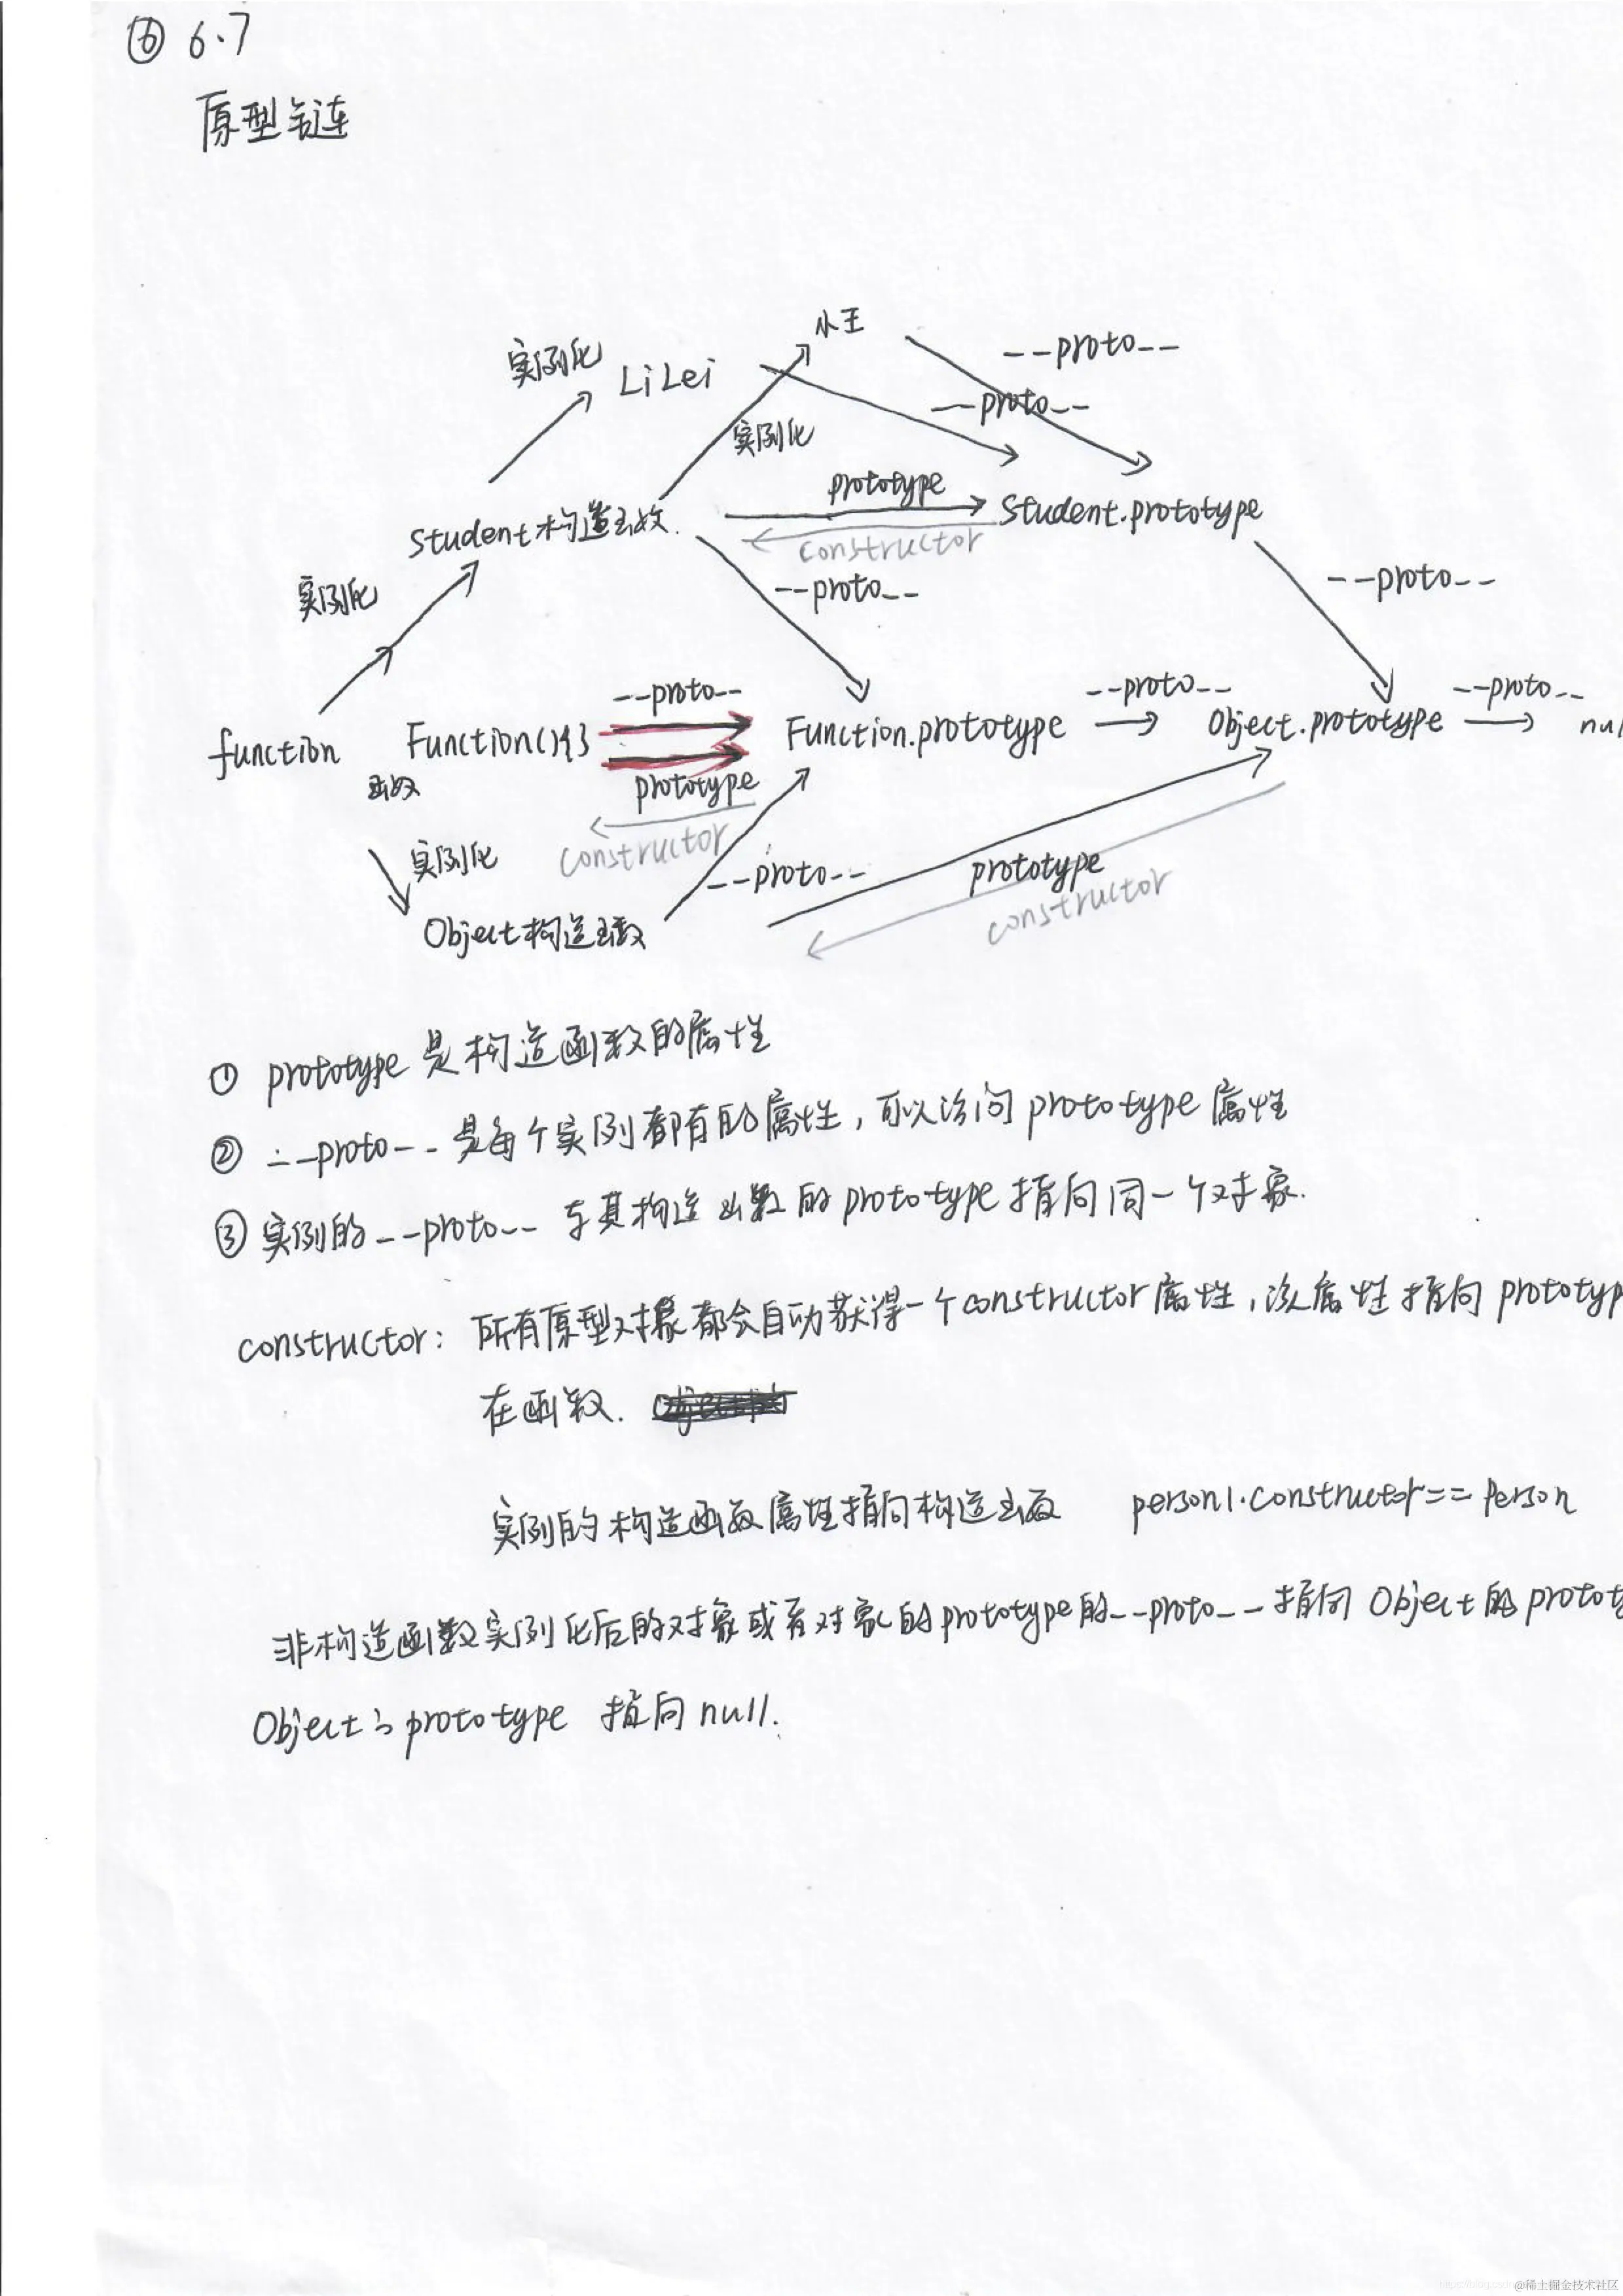 ⑥ 6.7
原型链
小王
实例化
LiLei
--proto--
--proto--
实例化
prototype
Student构造函数
Student.prototype
constructor
--proto--
--proto--
实例化
--proto--
--proto--
--proto--
function
Function(){}
Function.prototype
Object.prototype
nul
函数
prototype
constructor
实例化
--proto--
prototype
constructor
Object构造函数
① prototype 是构造函数的属性
② --proto-- 是每个实例都有的属性，可以访问 prototype 属性
③ 实例的 --proto-- 与其构造函数的 prototype 指向同一个对象.
constructor: 所有原型对象都会自动获得一个constructor属性，该属性指向 prototyp
在函数.
实例的构造函数属性指向构造函数 person1.constructor == Person
非构造函数实例化后的对象或者对象的prototype的--proto--指向 Object的protot
Object的prototype 指向null.
@稀土掘金技术社区